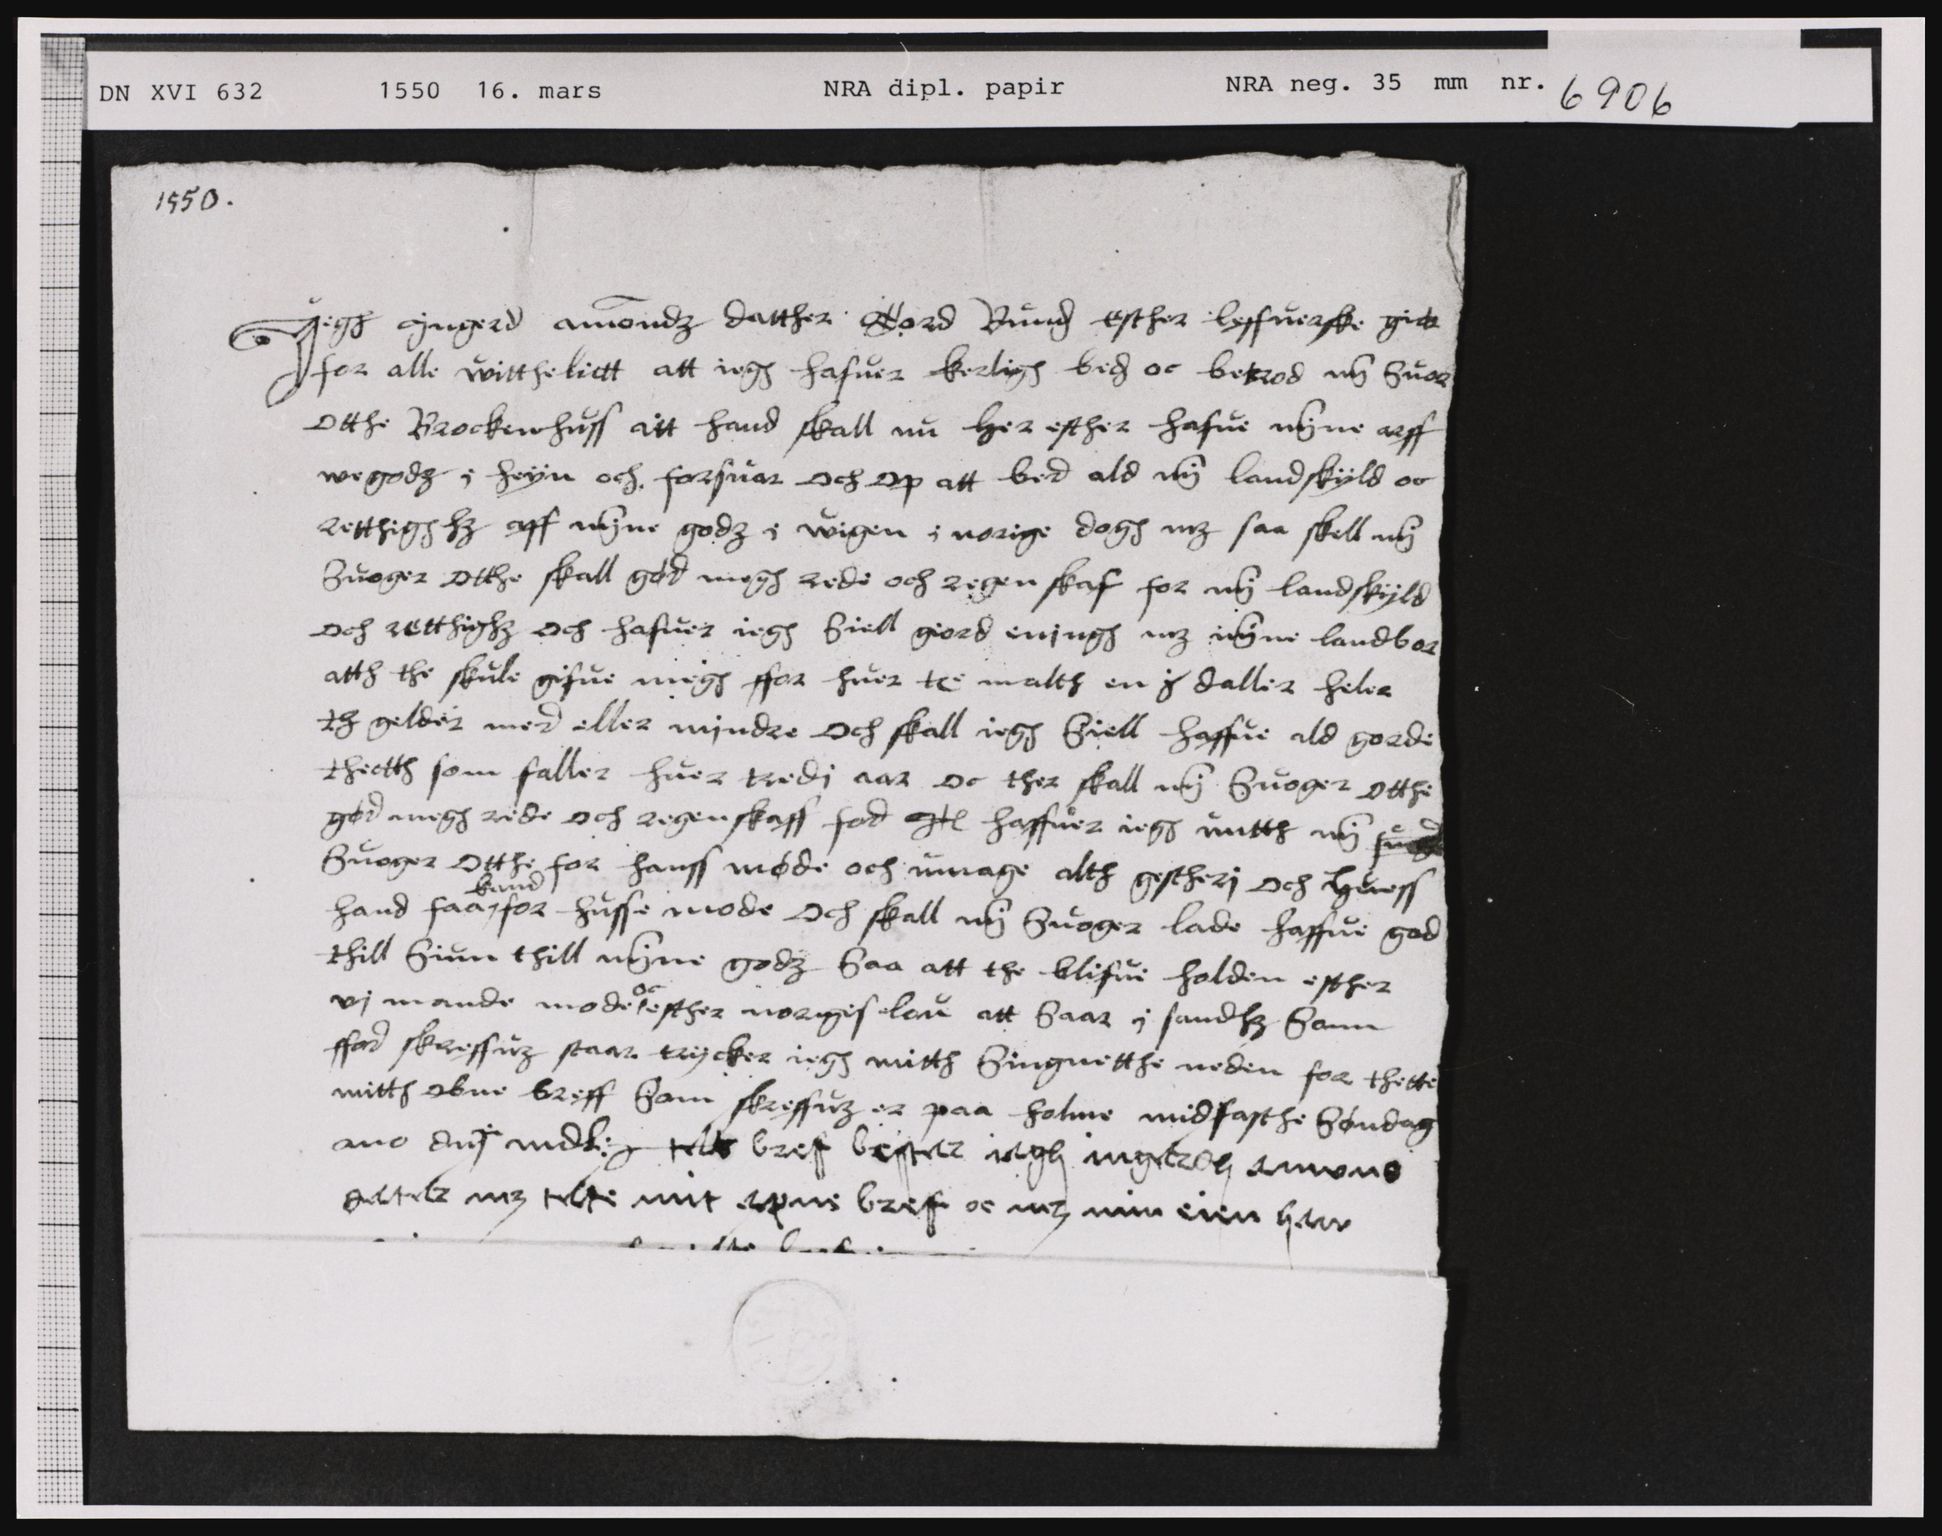 DN XVI 632 1550 16. mars NRA dipl. papir NRA neg. 35 mm nr. 6906
1550.
Jegh Jngerd amondz datther Tord Rundz effther leffuerske giør
for alle witthelictt att iegh hafuer kerligh bed oc betrod mÿ Suor
otthe Brockenhuss att hand skall nu her efther hafue mÿne arff
wegodz i heyn och forsuar och op att berd ald mÿ landskÿld oc
retthighhz aff mÿne godz i wigen i norige dogh mz saa skell mÿ
Suoger otthe skall gørd megh rede och regenskaf for mÿ landskÿld
och retthighz och hafuer iegh Siell giord eningh mz mÿne landbor
atth the skule gifue megh ffor huer tre malth en j daller heler
th gelder merd eller myndre och skall iegh Siell haffue ald gorde
thectth som faller huer tredi aar oc ther skall mÿ Suoger otthe
gørd megh rede och regenskaff ford Jtl haffuer iegh untth mÿ
Suoger otthe for hanss møde och umage alth gestherj och huess
kand
hand faa for husse mode och skall mÿ Suoger lade haffue god
thill Siun thill mÿne godz Saa att the blifue holden efther
oc
vj mande mode efther norgis lau att Saa er j sandhz Som
fford skreffuz staar trycker iegh mitth Singnetthe neden for thette
mitth obne breff Som skreffuz er paa holme midfasthe Søndag
ano dnj mdl tette bref besteter iegh ingerdh amvns
dater mz tette mit apne bref oc mz min eien haan